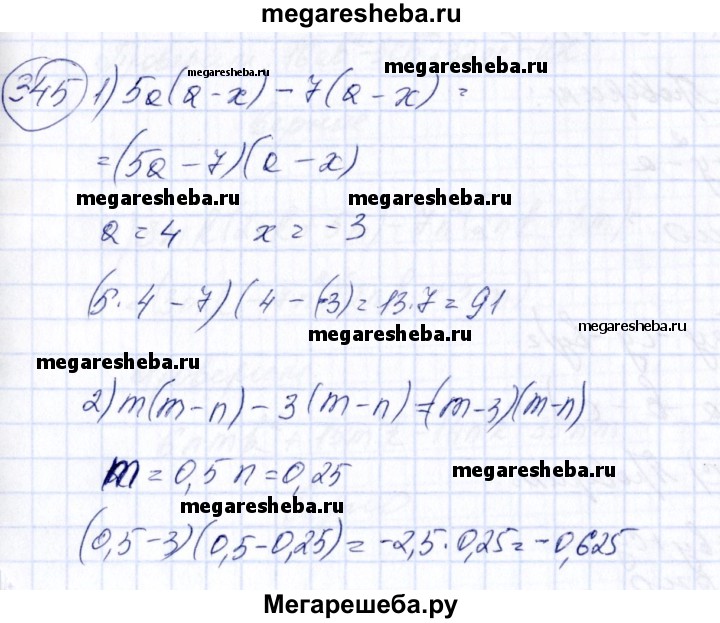 megaresheba.ru
345 1) 5a(a-x)-7(a-x)=
megaresheba.ru
megaresheba.ru
=(5a-7)(a-x)
megaresheba.ru megaresheba.ru
a=4 x=-3
(5·4-7)(4-(-3)=13·7=91
megaresheba.ru
megaresheba.ru
megaresheba.ru
2) m(m-n)-3(m-n)=(m-3)(m-n)
m=0,5 n=0,25
megaresheba.ru
megaresheba.ru
(0,5-3)(0,5-0,25)=-2,5·0,25=-0,625
Мегарешеба.ру